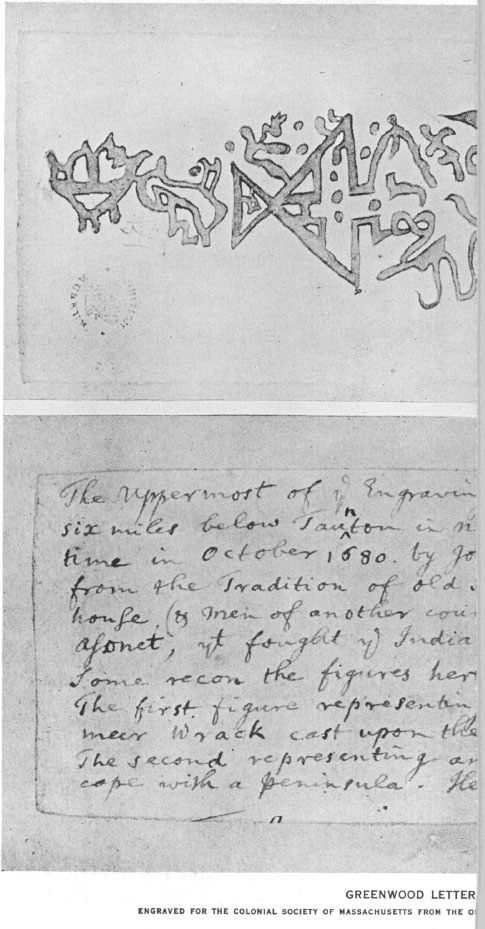 The Uppermost of yͤ Engravin
six miles below Taunton in n
time in October 1680. by Jo
from the Tradition of old
house, (& men of another cou
Asonet, yt fought yͤ India
Some recon the figures her
The first figure representin
meer Wrack cast upon the
The second representing an
cape with a peninsula. He
GREENWOOD LETTER
ENGRAVED FOR THE COLONIAL SOCIETY OF MASSACHUSETTS FROM THE O